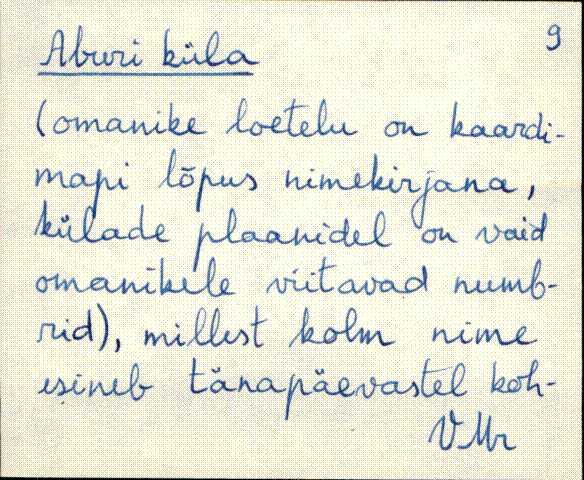 9
Aburi küla
(omanike loetelu on kaardi-
mapi lõpus nimekirjana,
külade plaanidel on vaid
omanikele viitavad numb-
rid), millest kolm nime
esineb tänapäevastel koh-
VMr